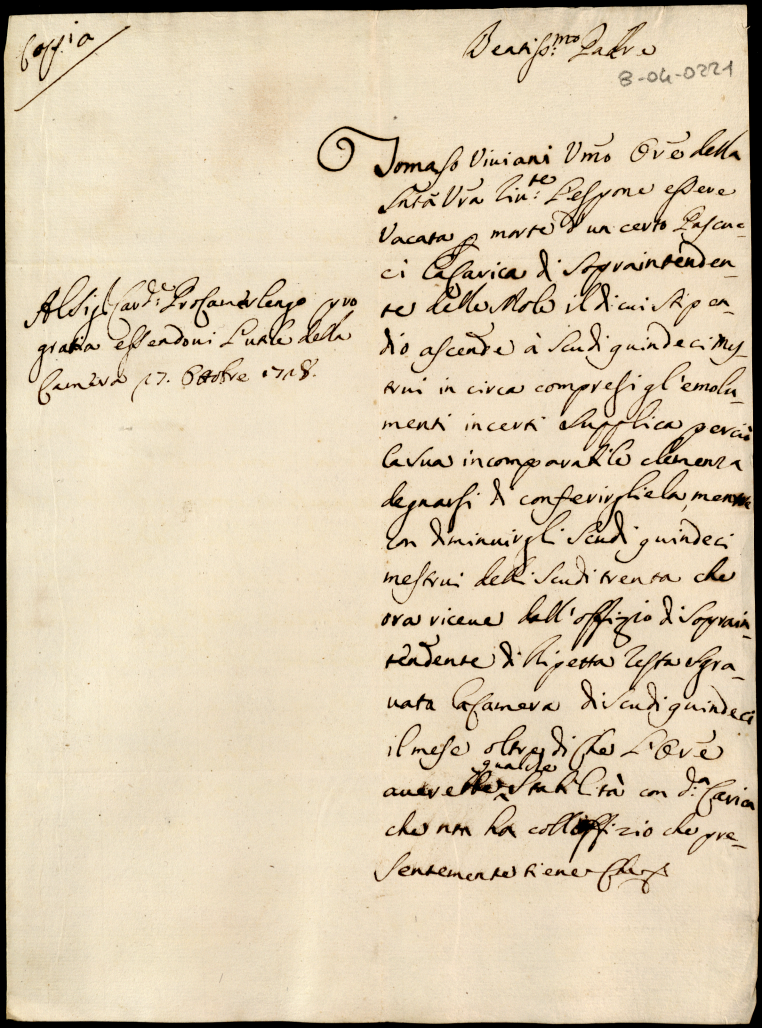 Coppia
Beatiss:mo Padre
8-04-0221
Tomaso Viviani Vmo Ore della
Sntà Vra Riv:te L'espone essere
Vacata p morte d'un certo Pascuc-
ci la Carica di Soprainténden-
te delle Mole il di cui Stipen-
dio ascende à Scudi quindeci Mes-
trui in circa compresi gl'emolu-
menti incerti Supplica perciò
la sua incomparabile clemenza
degnarsi di conferirgliela, mentre
con diminuirgli Scudi quindeci
mestrui delli Scudi trenta che
ora riceve dall'offizio di Soprain-
tendente di Ripetta resta sgra-
vata la Camera di Scudi quindeci
il mese oltre di che L'Ore
qualche
averebbe Stabilità con d:a Carica
che non ha coll'offizio che pre-
sentemente tiene Che
Al Sig.r Card:e Procamerlengo pro
gratia essendoui l'utile della
Camera 17. Ottobre 1718.